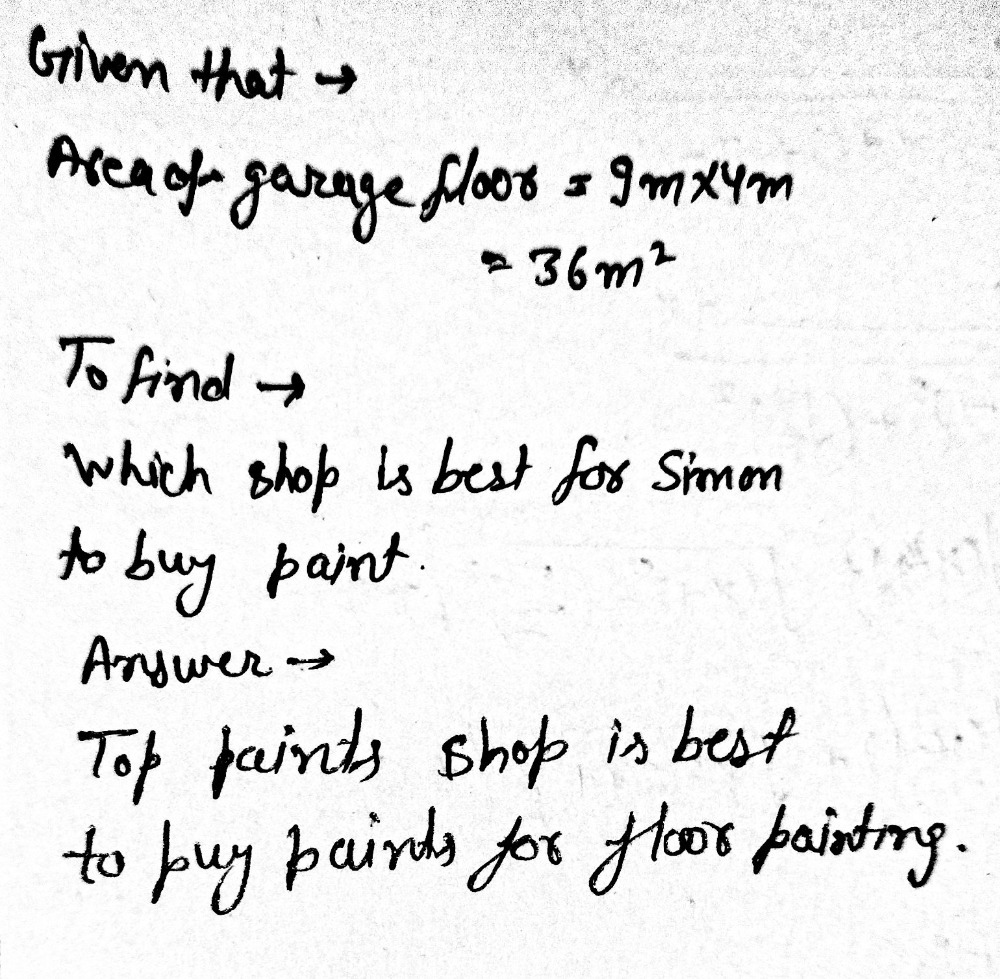 Given that →
Area of garage floor = 9m×4m
= 36m²
To find →
Which shop is best for Simon
to buy paint.
Answer →
Top paints shop is best
to buy paints for floor painting.